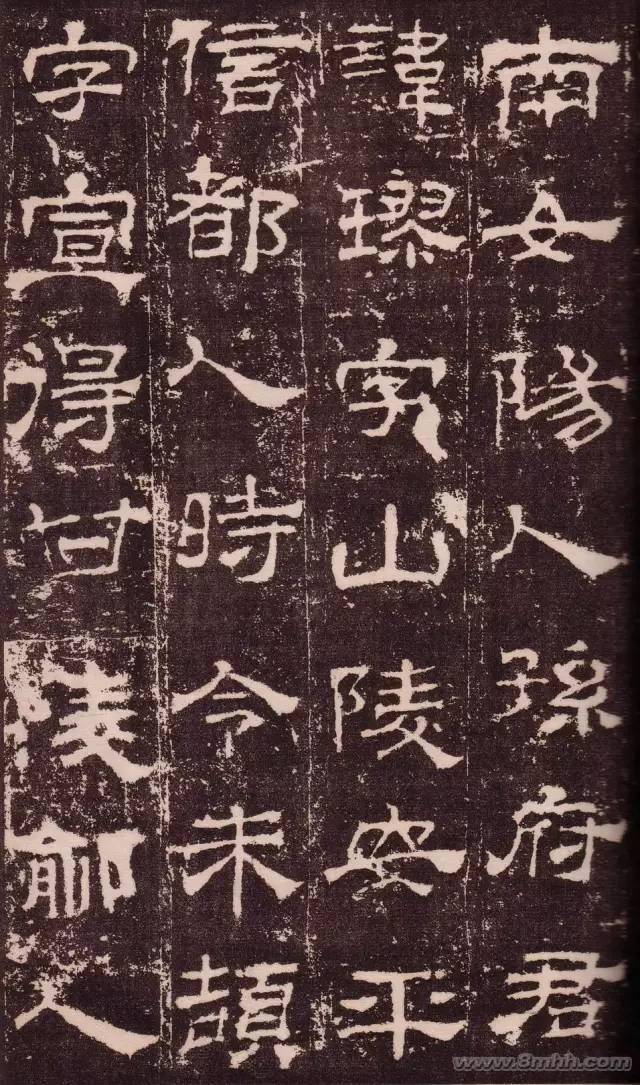 南女陽人孫府君
諱璆字山陵安平
信都人時令朱頡
字宣得甘陵鄃人
www.8mhh.com